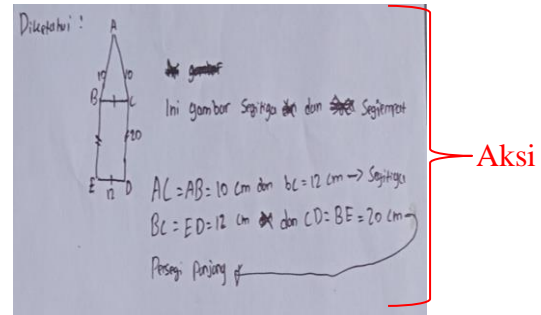 Diketahui :
A
10 10
B C
Ini gambar Segitiga dan Segiempat
20
E 12 D
AC = AB = 10 cm dan bc = 12 cm → Segitiga
BC = ED = 12 cm dan CD = BE = 20 cm
Persegi Panjang
Aksi